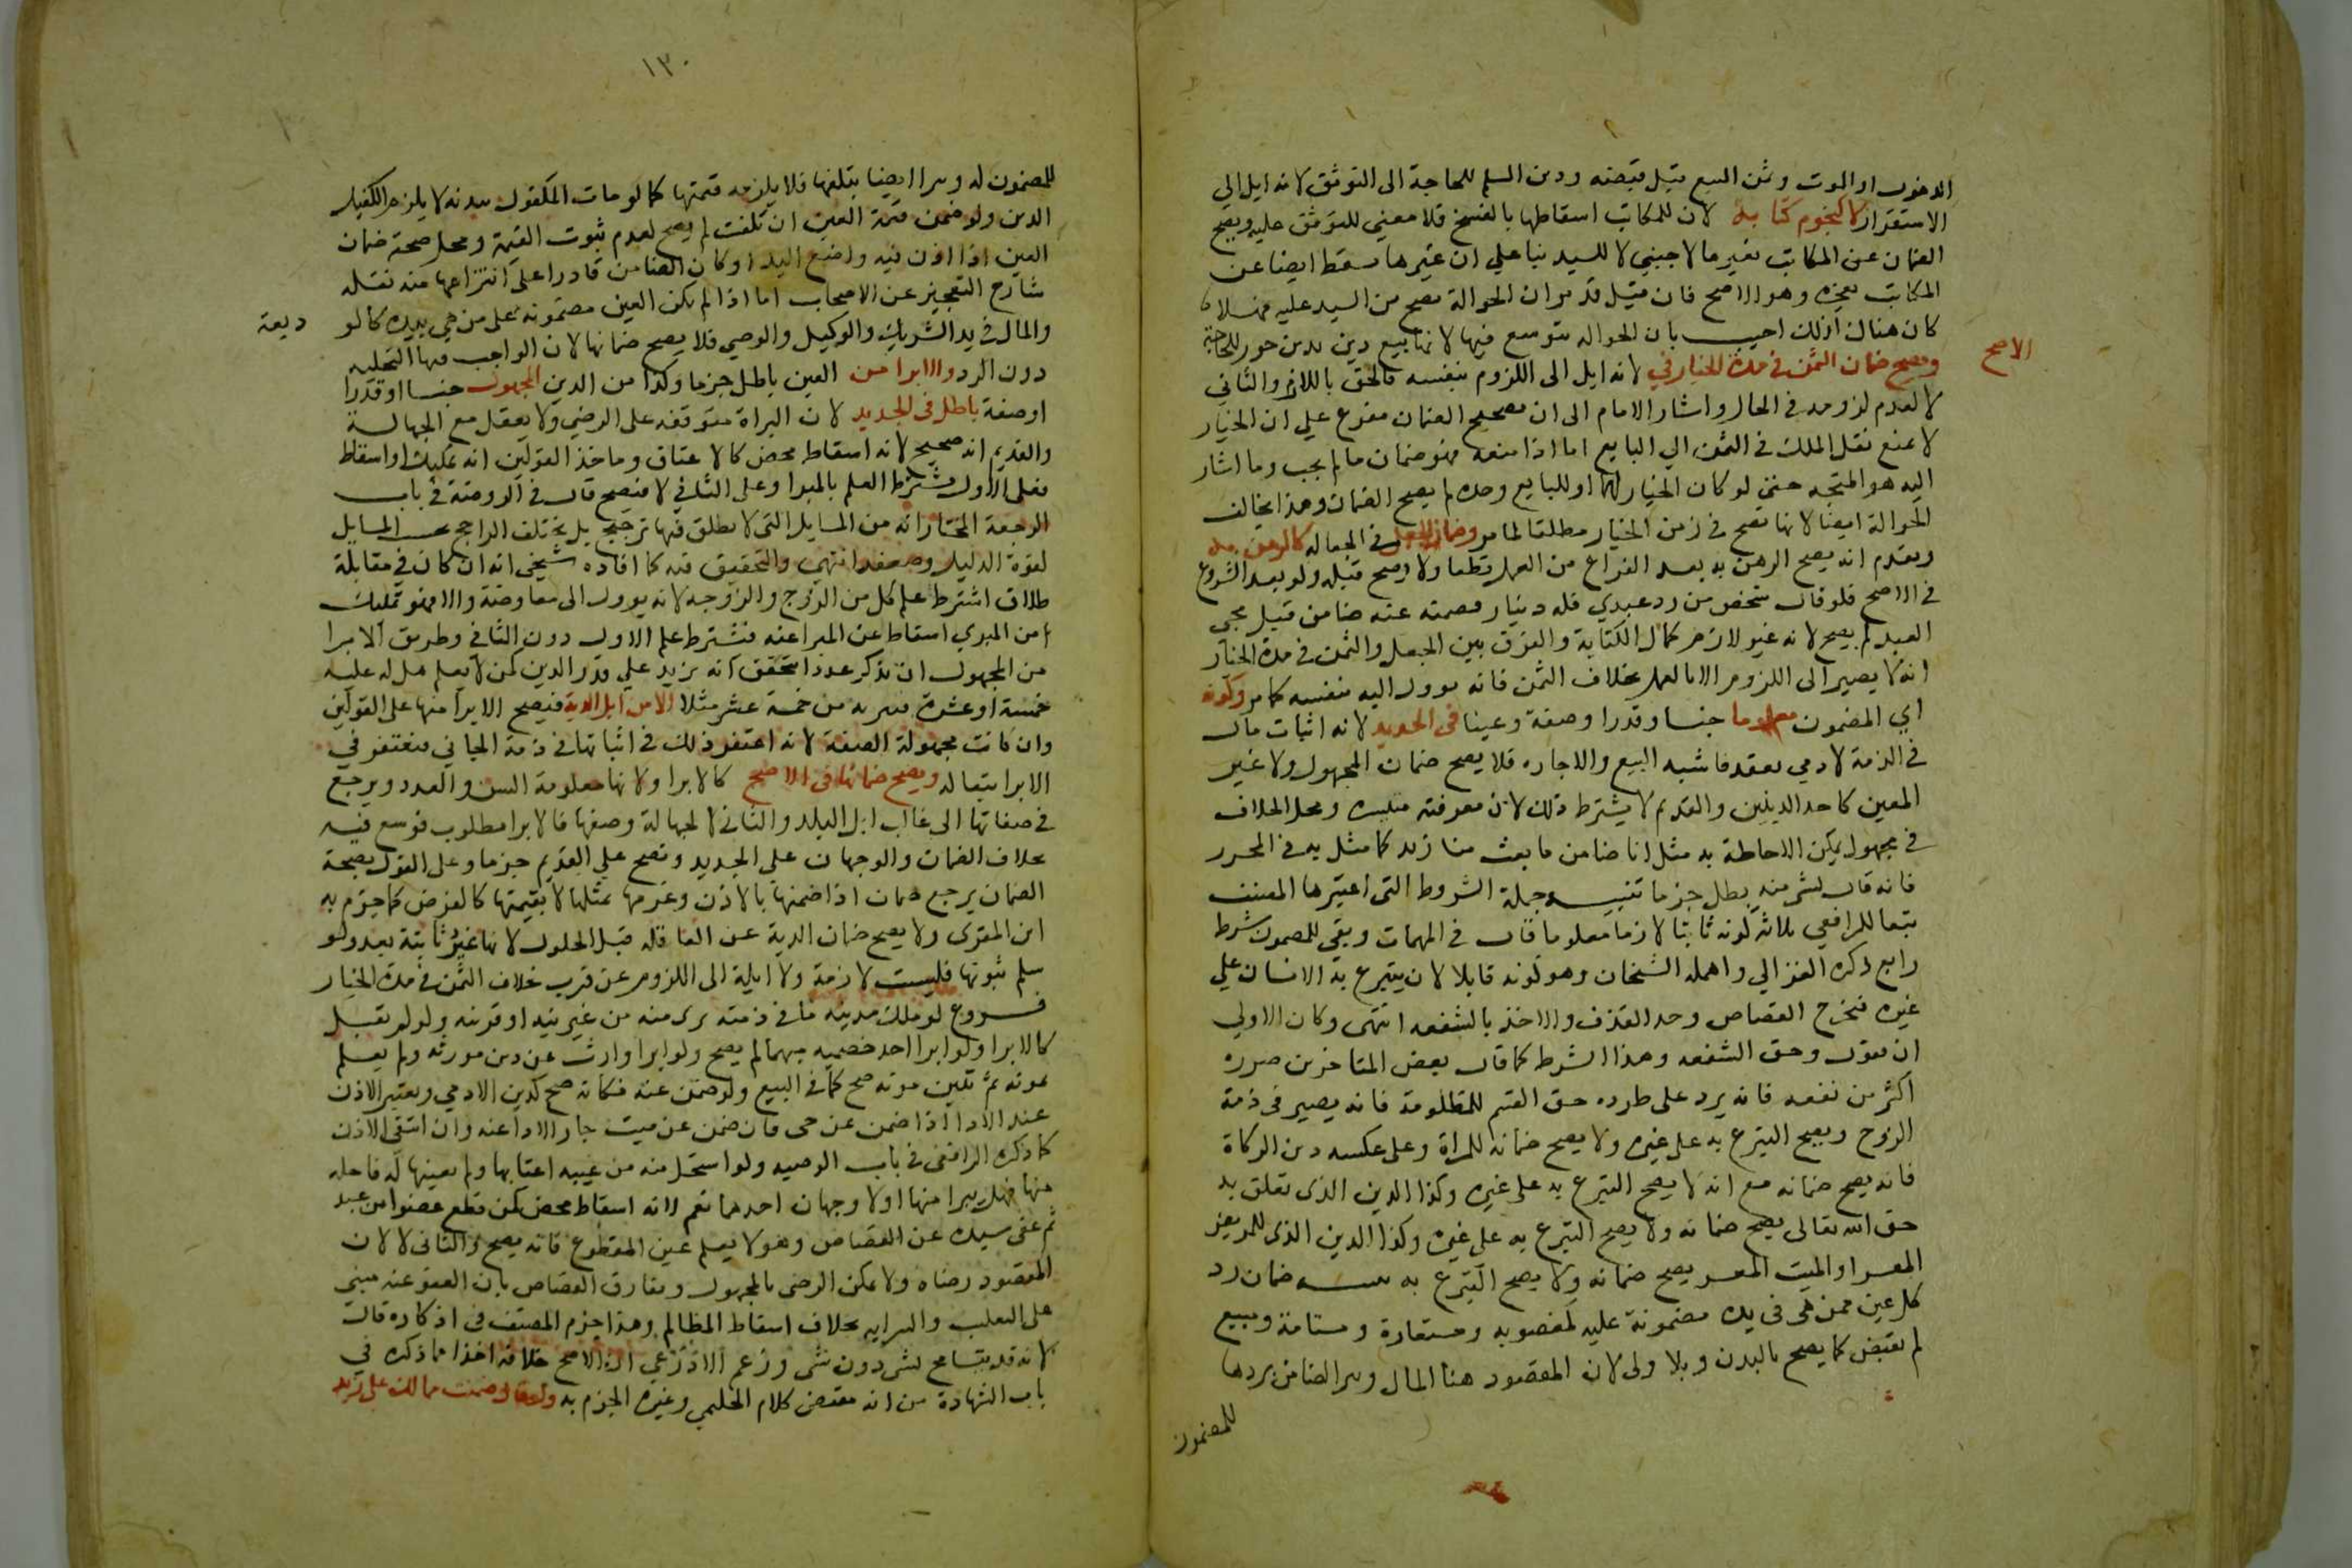 الدخول او الموت وثمن المبيع قبل قبضه ودين السلم للحاجة الى التوثق لانه ايل الى
الاستقرار لا كنجوم كتابة لان للمكاتب اسقاطها بالفسخ فلا معني للتوثق عليه ويصح
الضمان عن المكاتب بغيرها لاجنبي لا للسيد بنا علي ان غيرها يسقط ايضا عن
المكاتب بعجزه وهو الاصح فان قيل قد مر ان الحوالة تصح من السيد عليه فهلا
كان هنا كذلك اجيب بان الحواله يتوسع فيها لانها بيع دين بدين جوز للحاجة
ويصح ضمان الثمن في مدة الخيار في لانه ايل الى اللزوم بنفسه فالحق باللازم والثاني
الاصح
لا لعدم لزومه في الحال واشار الامام الى ان تصحيح الضمان مفرع علي ان الخيار
لا يمنع نقل الملك في الثمن الي البايع اما اذا منعه فهو ضمان ما لم يجب وما اشار
اليه هو المتجه حتى لو كان الخيار لهما او للبايع وحده لم يصح الضمان وهذا يخالف
الحوالة ايضا لانها تصح في زمن الخيار مطلقا لما مر وضمان الجعل في الجعاله كالرهن به
وتقدم انه يصح الرهن به بعد الفراغ من العمل قطعا ولا يصح قبله ولو بعد الشروع
في الاصح فلو قال شخص من رد عبدي فله دينار فضمنه عنه ضامن قبل مجي
العبد لم يصح لانه غير لازم كمال الكتابة والفرق بين الجعل والثمن في مدة الخيار
انه لا يصير الى اللزوم الا بالعمل بخلاف الثمن فانه يوول اليه بنفسه كما مر وكونه
اي المضمون معلوما جنسا وقدرا وصفة وعينا في الجديد لانه اثبات مال
في الذمة لادمي بعقد فاشبه البيع والاجاره فلا يصح ضمان المجهول ولا غير
المعين كاحد الدينين والقديم لا يشترط ذلك لان معرفته متيسره ومحل الخلاف
في مجهول يمكن الاحاطة به مثل انا ضامن ما بعت من زيد كما مثل به في المحرر
فانه قال لشي منه بطل جزما تنبيه جملة الشروط التي اعتبرها المصنف
تبعا للرافعي ثلاثه كونه ثابتا لازما معلوما قال في المهمات وبقي للمضمون شرط
رابع ذكره الغزالي واهمله الشيخان وهو كونه قابلا لان يتبرع به الانسان علي
غيره فيخرج القصاص وحد القذف والاخذ بالشفعه انتهى وكان الاولي
ان يقول وحق الشفعه وهذا الشرط كما قال بعض المتاخرين ضرره
اكثر من نفعه فانه يرد على طرده حق القسم للمظلومة فانه يصير في ذمة
الزوج ويصح التبرع به على غيره ولا يصح ضمانه للمراة وعلى عكسه دين الزكاة
فانه يصح ضمانه مع انه لا يصح التبرع به على غيره وكذا الدين الذي تعلق به
حق الله تعالى يصح ضمانه ولا يصح التبرع به على غيره وكذا الدين الذي للمريض
المعسر او الميت المعسر يصح ضمانه ولا يصح التبرع به ضمان رد
كل عين ممن هي في يده مضمونة عليه كمغصوبه ومستعارة ومستامة ومبيع
لم يقبض كما يصح بالبدن وبلا ولى لان المقصود هنا المال ويبرا الضامن بردها
للمضمون
١٣٠
للمضمون له ويبرا ايضا بتلفها فلا يلزمه قيمتها كما لو مات المكفول ببدنه لا يلزم الكفيل
الدين ولو ضمن قيمة العين ان تلفت لم يصح لعدم ثبوت القيمة ومحل صحة ضمان
العين اذا اذن فيه واضع اليد او كان الضامن قادرا على انتزاعها منه نقله
شارح التعجيز عن الاصحاب اما اذا لم يكن العين مضمونة على من هي بيده كالو
ديعة
والمال في يد الشريك والوكيل والوصي فلا يصح ضمانها لان الواجب فيها التخليه
دون الرد والابرا من العين باطل جزما وكذا من الدين المجهول جنسا او قدرا
او صفة باطل في الجديد لان البراة متوقفه على الرضي ولا يعقل مع الجهالة
والقديم انه صحيح لانه اسقاط محض كالاعتاق وماخذ القولين انه تمليك او اسقاط
فعلى الاول يشترط العلم بالمبرا وعلى الثاني لا فيصح قال في الروضة في باب
الرجعة المختار انه من المسايل التي لا يطلق فيها ترجيح بل يختلف الراجح بحسب المسايل
لقوة الدليل وضعفه انتهى والتحقيق فيه كما افاده شيخي انه ان كان في مقابلة
طلاق اشترط علم كل من الزوج والزوجه لانه يوول الى معاوضة والا فهو تمليك
من المبري اسقاط عن المبرا عنه فيشترط علم الاول دون الثاني وطريق الابرا
من المجهول ان يذكر عددا يتحقق انه يزيد علي قدر الدين كمن لا يعلم هل له عليه
خمسة او عشرة فيبريه من خمسة عشر مثلا الا من ابل الدية فيصح الابرا منها على القولين
وان كانت مجهولة الصفة لانه اغتفر ذلك في اثباتها في ذمة الجاني فيغتفر في
الابرا تبعا له ويصح ضمانها في الاصح كالابرا ولانها معلومة السن والعدد ويرجع
في صفاتها الى غالب ابل البلد والثاني لا لجهالة وصفها فالابرا مطلوب فوسع فيه
بخلاف الضمان والوجهان على الجديد وتصح علي القديم جزما وعلى القول بصحة
الضمان يرجع ضمان اذا ضمنها بالاذن وغرمها بمثلها لا بقيمتها كالقرض كما جزم به
ابن المقرى ولا يصح ضمان الدية عن العاقله قبل الحلول لانها غير ثابتة بعد ولو
سلم ثبوتها فليست لازمة ولا ايلة الى اللزوم عن قرب بخلاف الثمن في مدة الخيار
فــروع لو ملك مدينه ما في ذمته برى منه من غير نيه او قرينه ولو لم يقبل
كالابرا ولو ابرا احد خصميه مبهما لم يصح ولو ابرا وارث عن دين مورثه ولم يعلم
بموته ثم تبين موته صح كما في البيع ولو ضمن عنه زكاته صح كدين الادمي ويعتبر الاذن
عند الادا اذا ضمن عن حى فان ضمن عن ميت جاز الادا عنه وان انتفى الاذن
كما ذكره الرافعى في باب الوصيه ولو استحل منه من غيبه اغتابها ولم يعينها له فاحله
منها فهل يبرا منها اولا وجهان احدهما نعم لانه اسقاط محض كمن قطع عضوا من عبد
ثم عفى سيده عن القصاص وهو لا يعلم عين المقطوع فانه يصح والثاني لا لان
المقصود رضاه ولا يمكن الرضى بالمجهول ويفارق القصاص بان العفو عنه مبنى
على التغليب والسرايه بخلاف اسقاط المظالم وهذا جزم المصنف في اذكاره قال
لانه قد يتسامح لشي دون شي وزعم الاذرعي ان الاصح خلافه اخذا مما ذكره في
باب الشهادة من انه مقتضى كلام الحليمي وغيره الجزم به ولو قال ضمنت مما لك على زيد